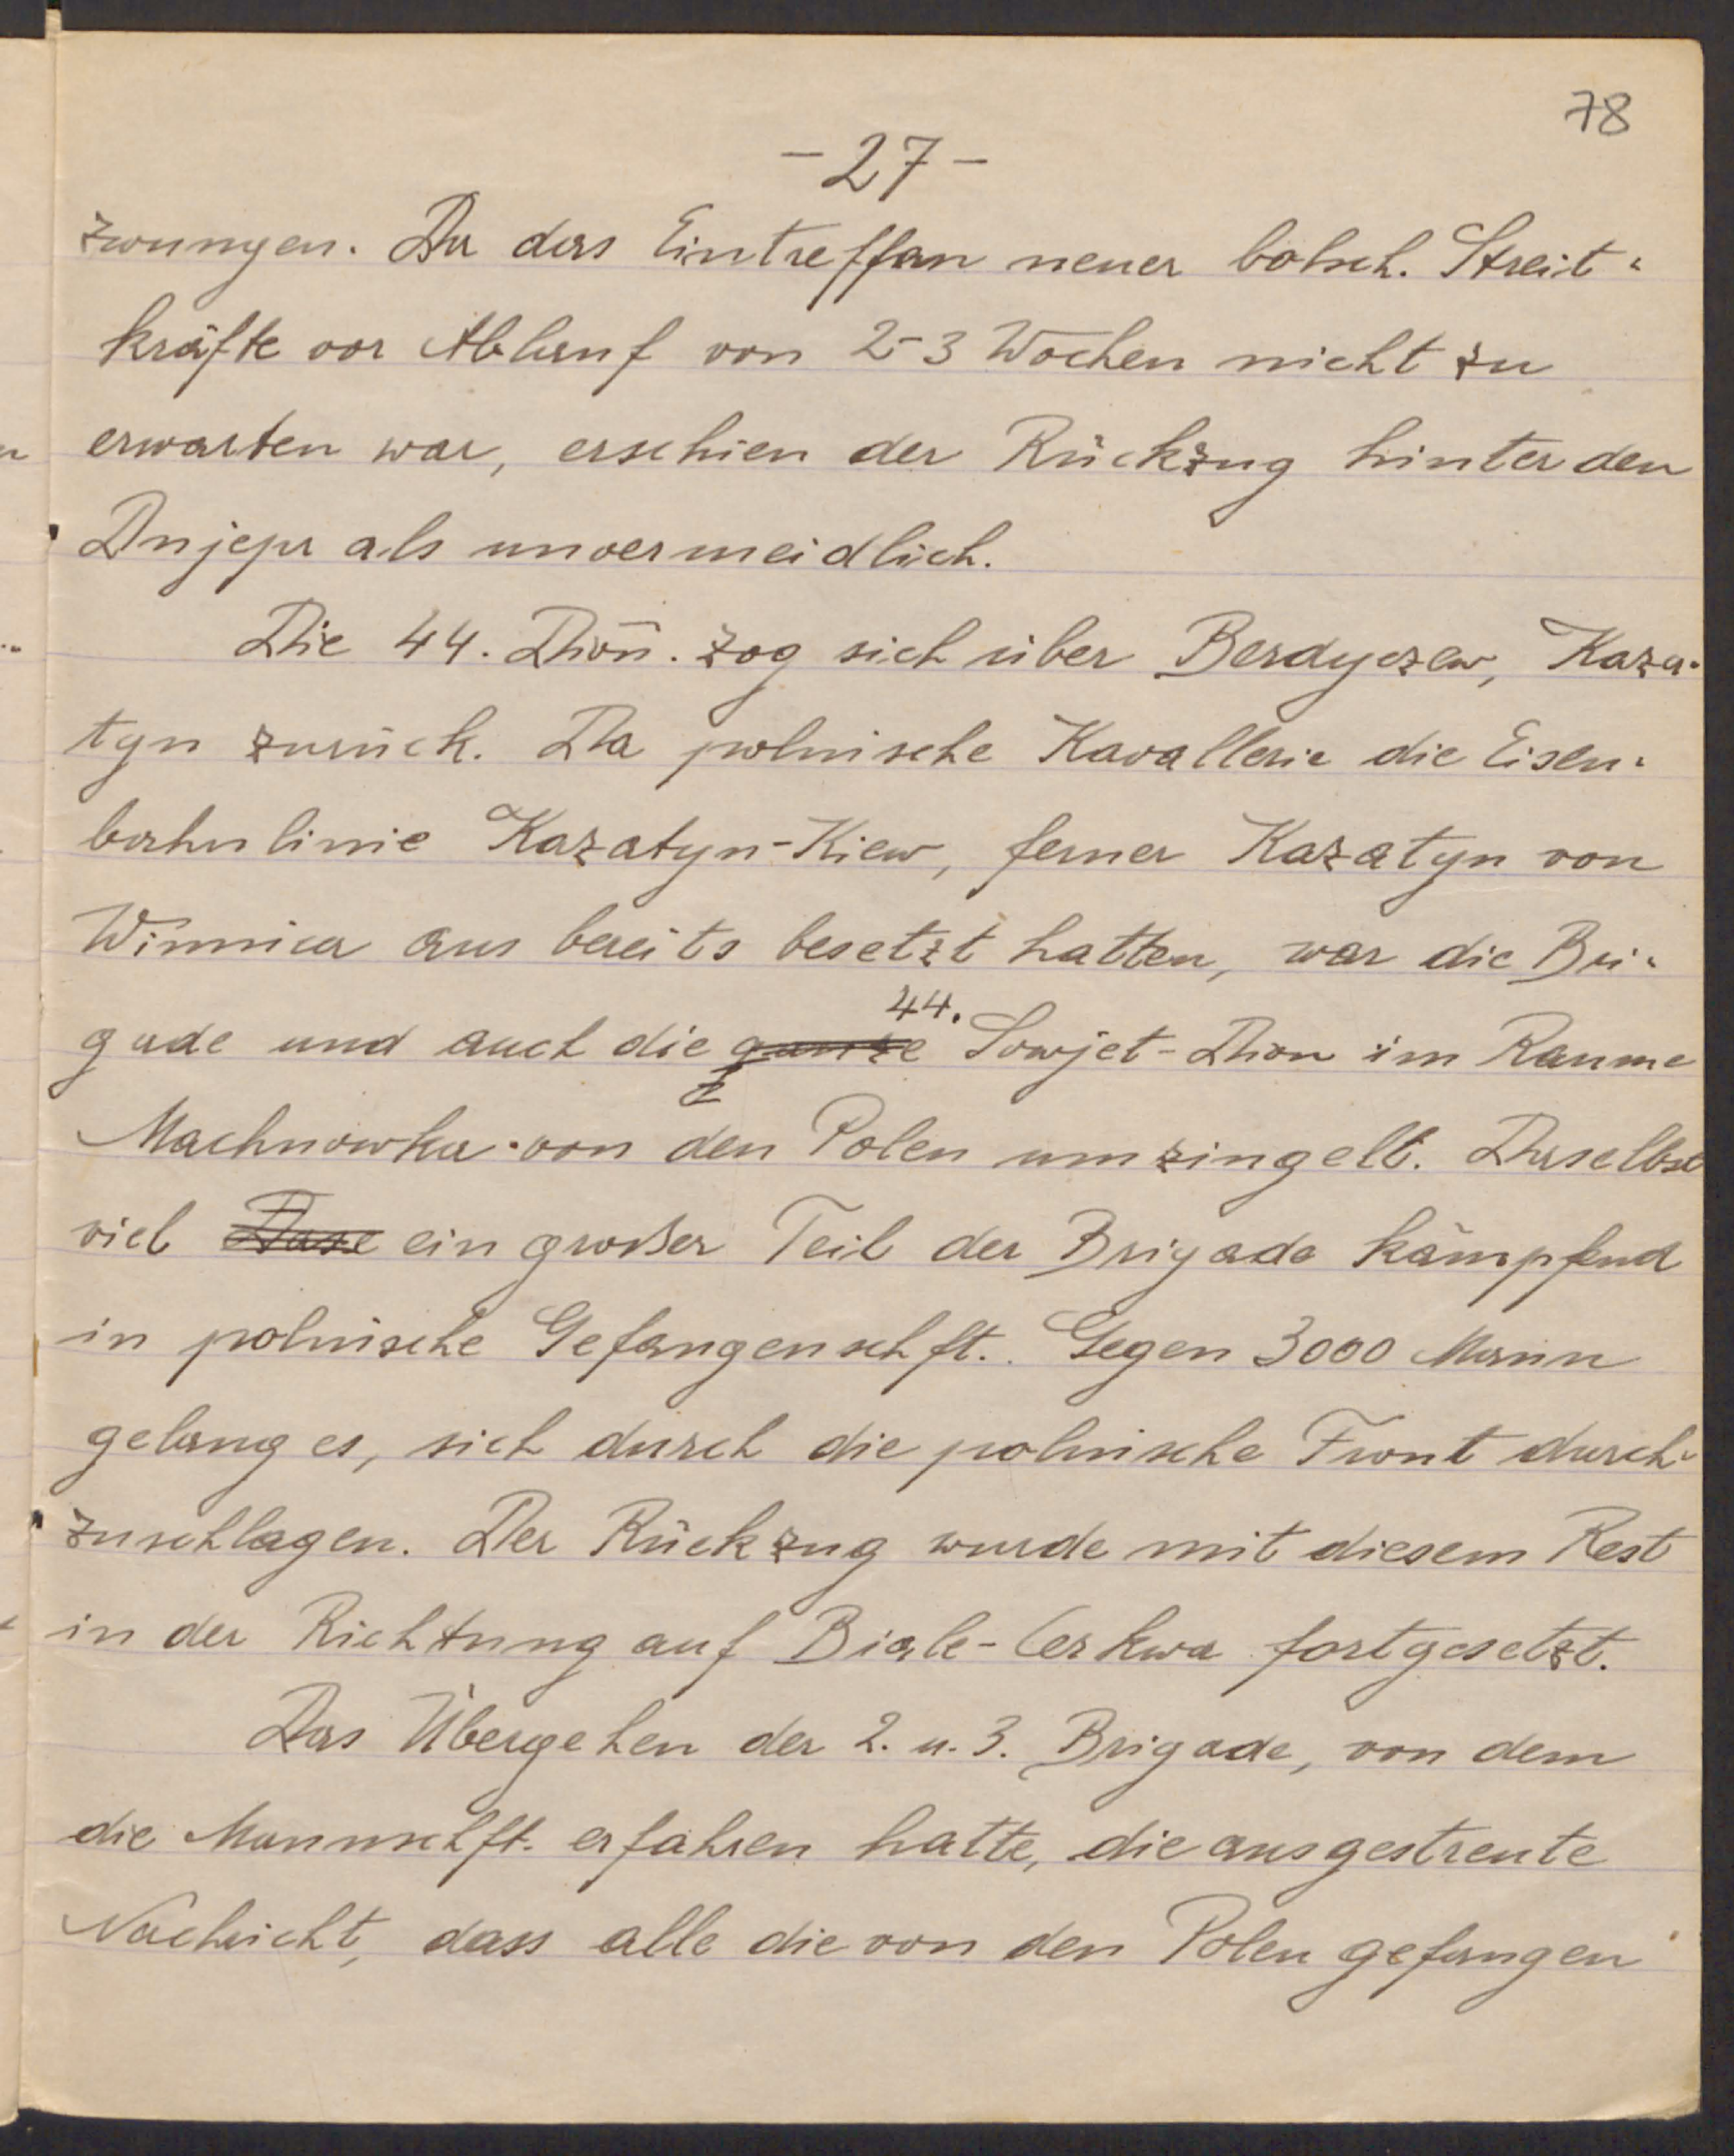 78
-27-
zwungen. Da das Eintreffen neuer bolsch. Streit-
kräfte vor Ablauf von 2-3 Wochen nicht zu
erwarten war, erschien der Rückzug hinter den
Dnjepr als unvermeidlich.
Die 44. Dion. zog sich über Berdyczew, Kaza-
tyn zurück. Da polnische Kavallerie die Eisen-
bahnlinie Kazatyn-Kiew, ferner Kazatyn von
Winnica aus bereits besetzt hatten, war die Bri-
44.
gade und auch die ganze Sowjet-Dion im Raume
Machnowka von den Polen umzingelt. Daselbst
viel Dase ein großer Teil der Brigade kämpfend
in polnische Gefangenschft. Gegen 3000 Mann
gelang es, sich durch die polnische Front durch-
zuschlagen. Der Rückzug wurde mit diesem Rest
in der Richtung auf Biale-Cerkwa fortgesetzt.
Das Übergehen der 2. u. 3. Brigade, von dem
die Mannschft. erfahren hatte, die ausgestreute
Nachricht, dass alle die von den Polen gefangen